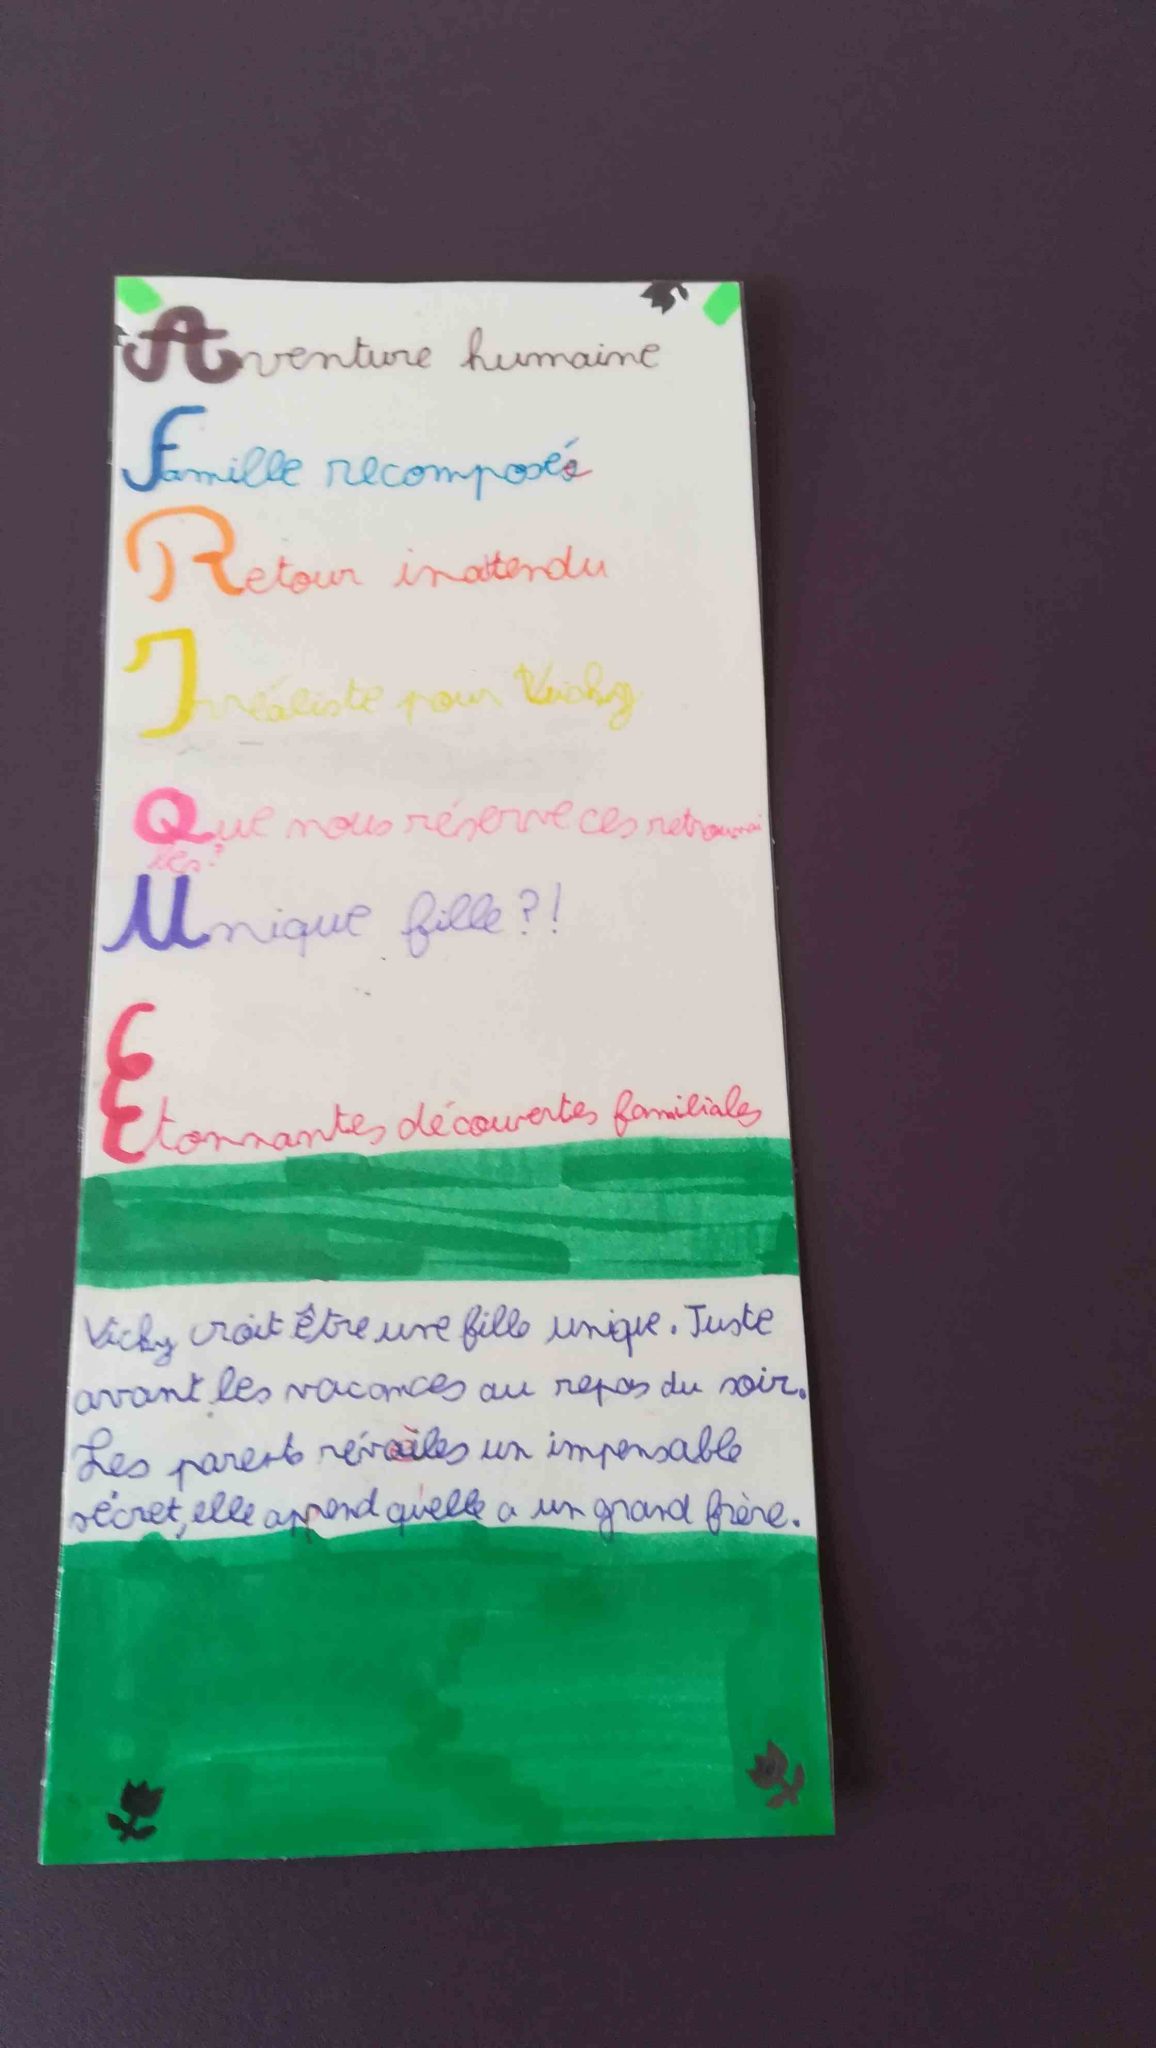 Aventure humaine
Famille recomposée
Retour inattendu
Irréaliste pour Vicky
Que nous réserve ces retrouvai
lles?
Unique fille?!
Etonnantes découvertes familiales
Vicky croit Être une fille unique. Juste
avant les vacances au repas du soir.
Les parents révèiles un impensable
sécret, elle apprend qu'elle a un grand frère.